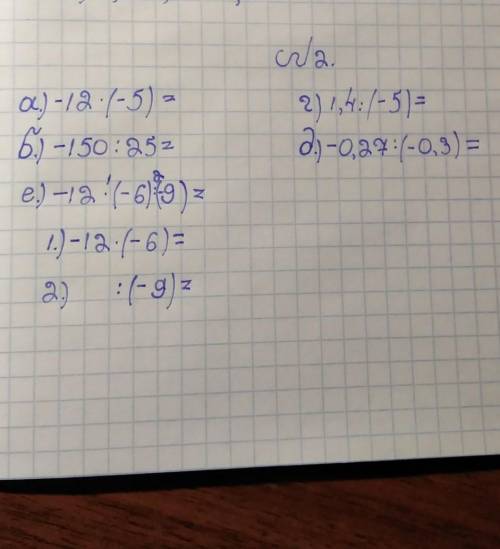 N2.
а.) -12 · (-5) =
б.) -150 : 25 =
е.) -12 ·¹ (-6) :² (-9) =
1.) -12 · (-6) =
2.) : (-9) =
г) 1,4 : (-5) =
д.) -0,27 : (-0,3) =